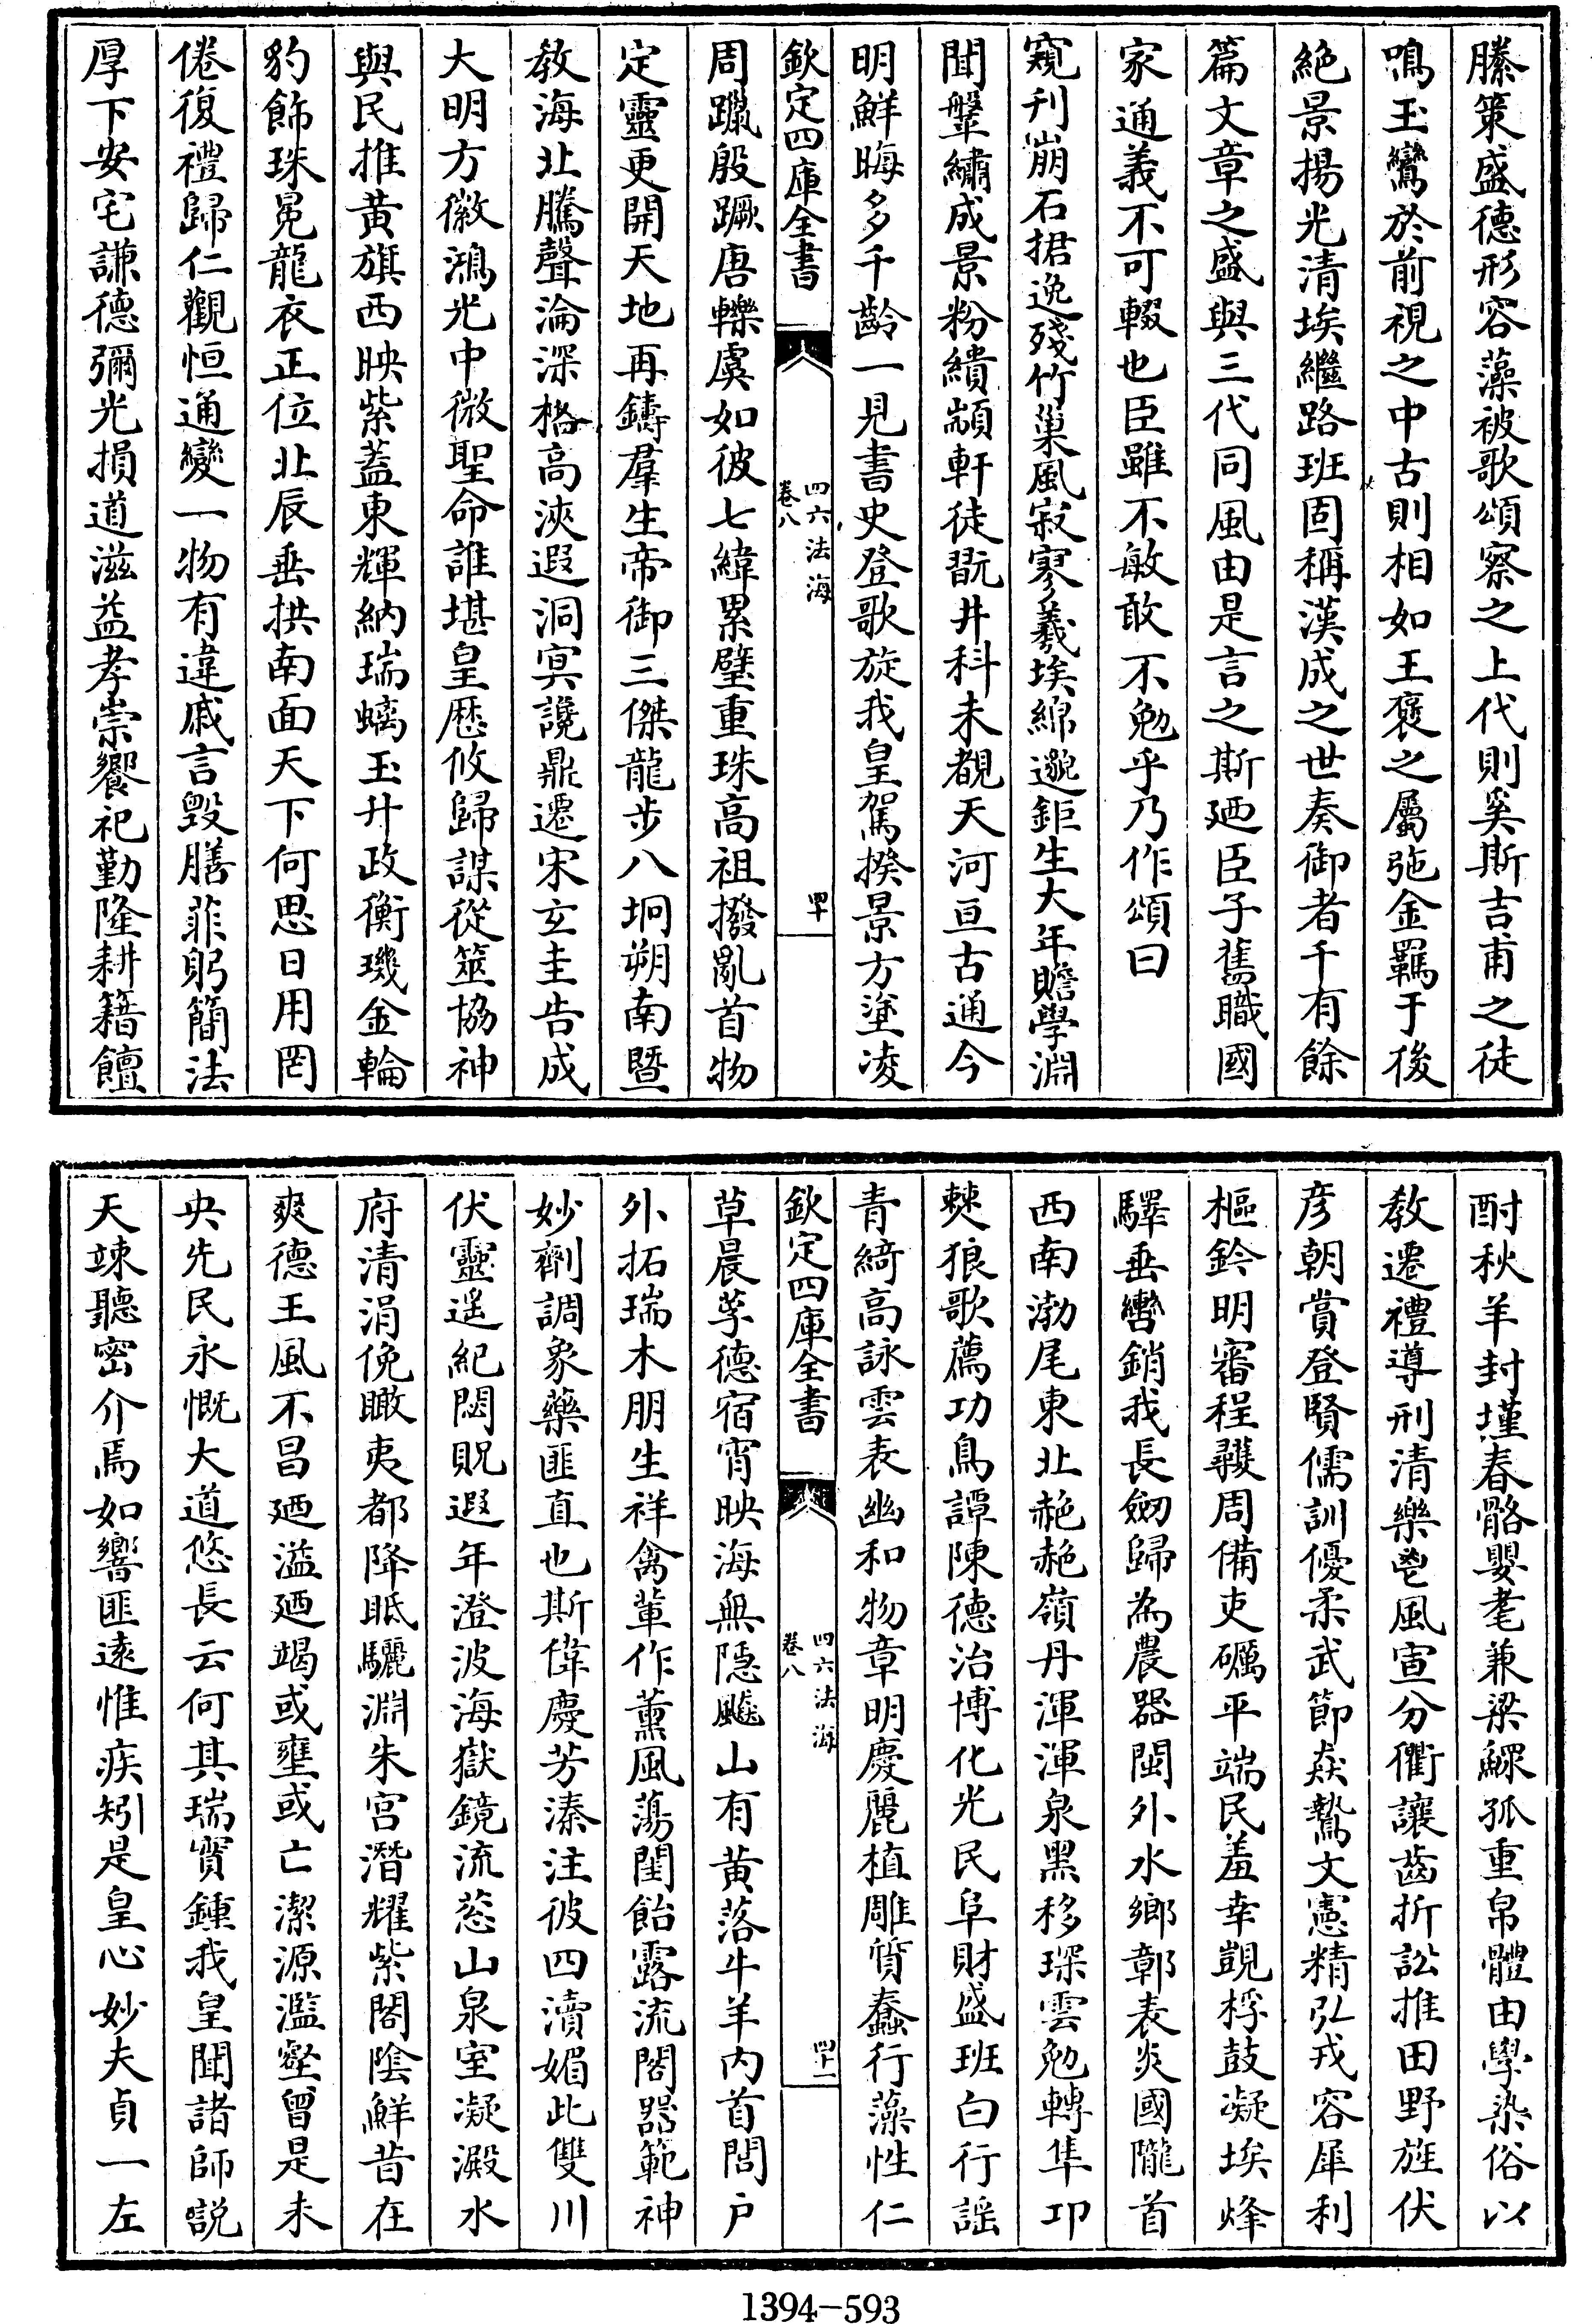 縢策盛德形容藻被歌頌察之上代則奚斯吉甫之徒
鳴玉鸞於前視之中古則相如王襃之屬弛金羈于後
絶景揚光清埃繼路班固稱漢成之世奏御者千有餘
篇文章之盛與三代同風由是言之斯廼臣子舊職國
家通義不可輟也臣雖不敏敢不勉乎乃作頌曰
窺刋崩石捃逸殘竹巢風寂寥羲埃綿邈鉅生大年贍學淵
聞鞶繡成景粉繢顓軒徒翫井科未覩天河亘古通今
明鮮晦多千齡一見書史登歌旋我皇駕揆景方塗凌
欽定四庫全書
四六法海
卷八
四十
周躐殷蹶唐轢虞如彼七緯累璧重珠高祖撥亂首物
定靈更開天地再鑄羣生帝御三傑龍步八坰朔南暨
教海北騰聲淪深格高浹遐洞冥讒鼎遷宋玄圭告成
大明方徽鴻光中微聖命誰堪皇歴攸歸謀從筮協神
與民推黄旗西映紫蓋東輝納瑞螭玉升政衡璣金輪
豹飾珠冕龍衣正位北辰垂拱南面天下何思日用罔
倦復禮歸仁觀恒通變一物有違戚言毁膳菲躬簡法
厚下安宅謙德彌光損道滋益孝崇饗祀勤隆耕籍饘
酎秋羊封墐春骼嬰耄兼粱鰥孤重帛體由學染俗以
教遷禮導刑清樂鬯風宣分衢讓齒折訟推田野旌伏
彦朝賞登賢儒訓優柔武節焱鷙文憲精弘戎容犀利
樞鈐明審程䕶周備吏礪平端民羞幸覬桴鼓凝埃烽
驛垂轡銷我長劒歸為農器閩外水鄉鄣表炎國隴首
西南渤尾東北赩赩嶺丹渾渾泉黑移琛雲勉轉隼卭
僰狼歌薦功鳥譚陳德治博化光民阜財盛班白行謡
青綺高詠雲表幽和物章明慶麗植雕質蠢行藻性仁
欽定四庫全書
四六法海
卷八
四十一
草晨莩德宿宵映海無隱飈山有黄落牛羊内首閭户
外拓瑞木朋生祥禽輩作薫風蕩闉飴露流閣器範神
妙劑調象藥匪直也斯偉慶芳溱注彼四瀆媚此雙川
伏靈遙紀閟貺遐年澄波海嶽鏡流慈山泉室凝澱水
府清涓俛瞰夷都降眡驪淵朱宮潛耀紫閣陰鮮昔在
爽德王風不昌廼溢廼竭或壅或亡潔源濫壑曾是未
央先民永慨大道悠長云何其瑞實鍾我皇聞諸師説
天竦聽密介焉如響匪遠惟疾矧是皇心妙夫貞一左
1394-593